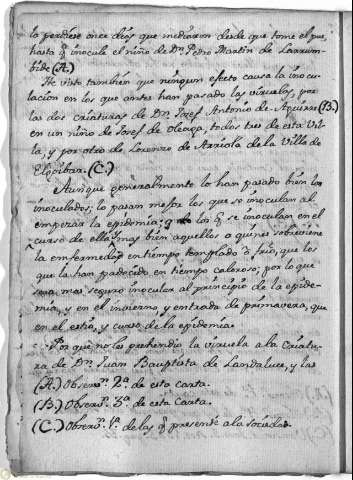 lo perdiese once dias que mediaron desde que tome el pus,
hasta q̃ inocule el niño de Dn. Pedro Martin de Larrum-
bide (A.)
He visto tambien que ningun efecto causa la inocu-
lacion en los que antes han pasado las viruelas, por
las dos criaturas de Dn. Josef Antonio de Aguirre (B.)
en un niño de Josef de Oleaga, todos tres de esta Vi-
lla, y por otro de Lorenzo de Arriola de la Villa de
Elgoibar. (C.)
Aunque generalmente lo han pasado bien los
inoculados; lo pasan mejor los que se inoculan al
empezar la epidemia; q los q̃ se inoculan en el
curso de ella; mas bien aquellos a quienes sobreviene
la enfermedad en tiempo templado ò frio, que los
que la han padecido en tiempo caloroso; por lo que
sera mas seguro inocular al principio de la epide-
mia, y en el invierno y entrada de primavera, que
en el estio, y curso de la epidemia.
Por que no les prehendio la viruela a la Criatu-
ra de Dn. Juan Bauptista de Landaluce, y las
(A.) Observn. 2a. de esta carta.
(B.) Observn. 3a. de esta Carta.
(C.) Observn. 1a. de las q̃ presenté a la Sociedad.